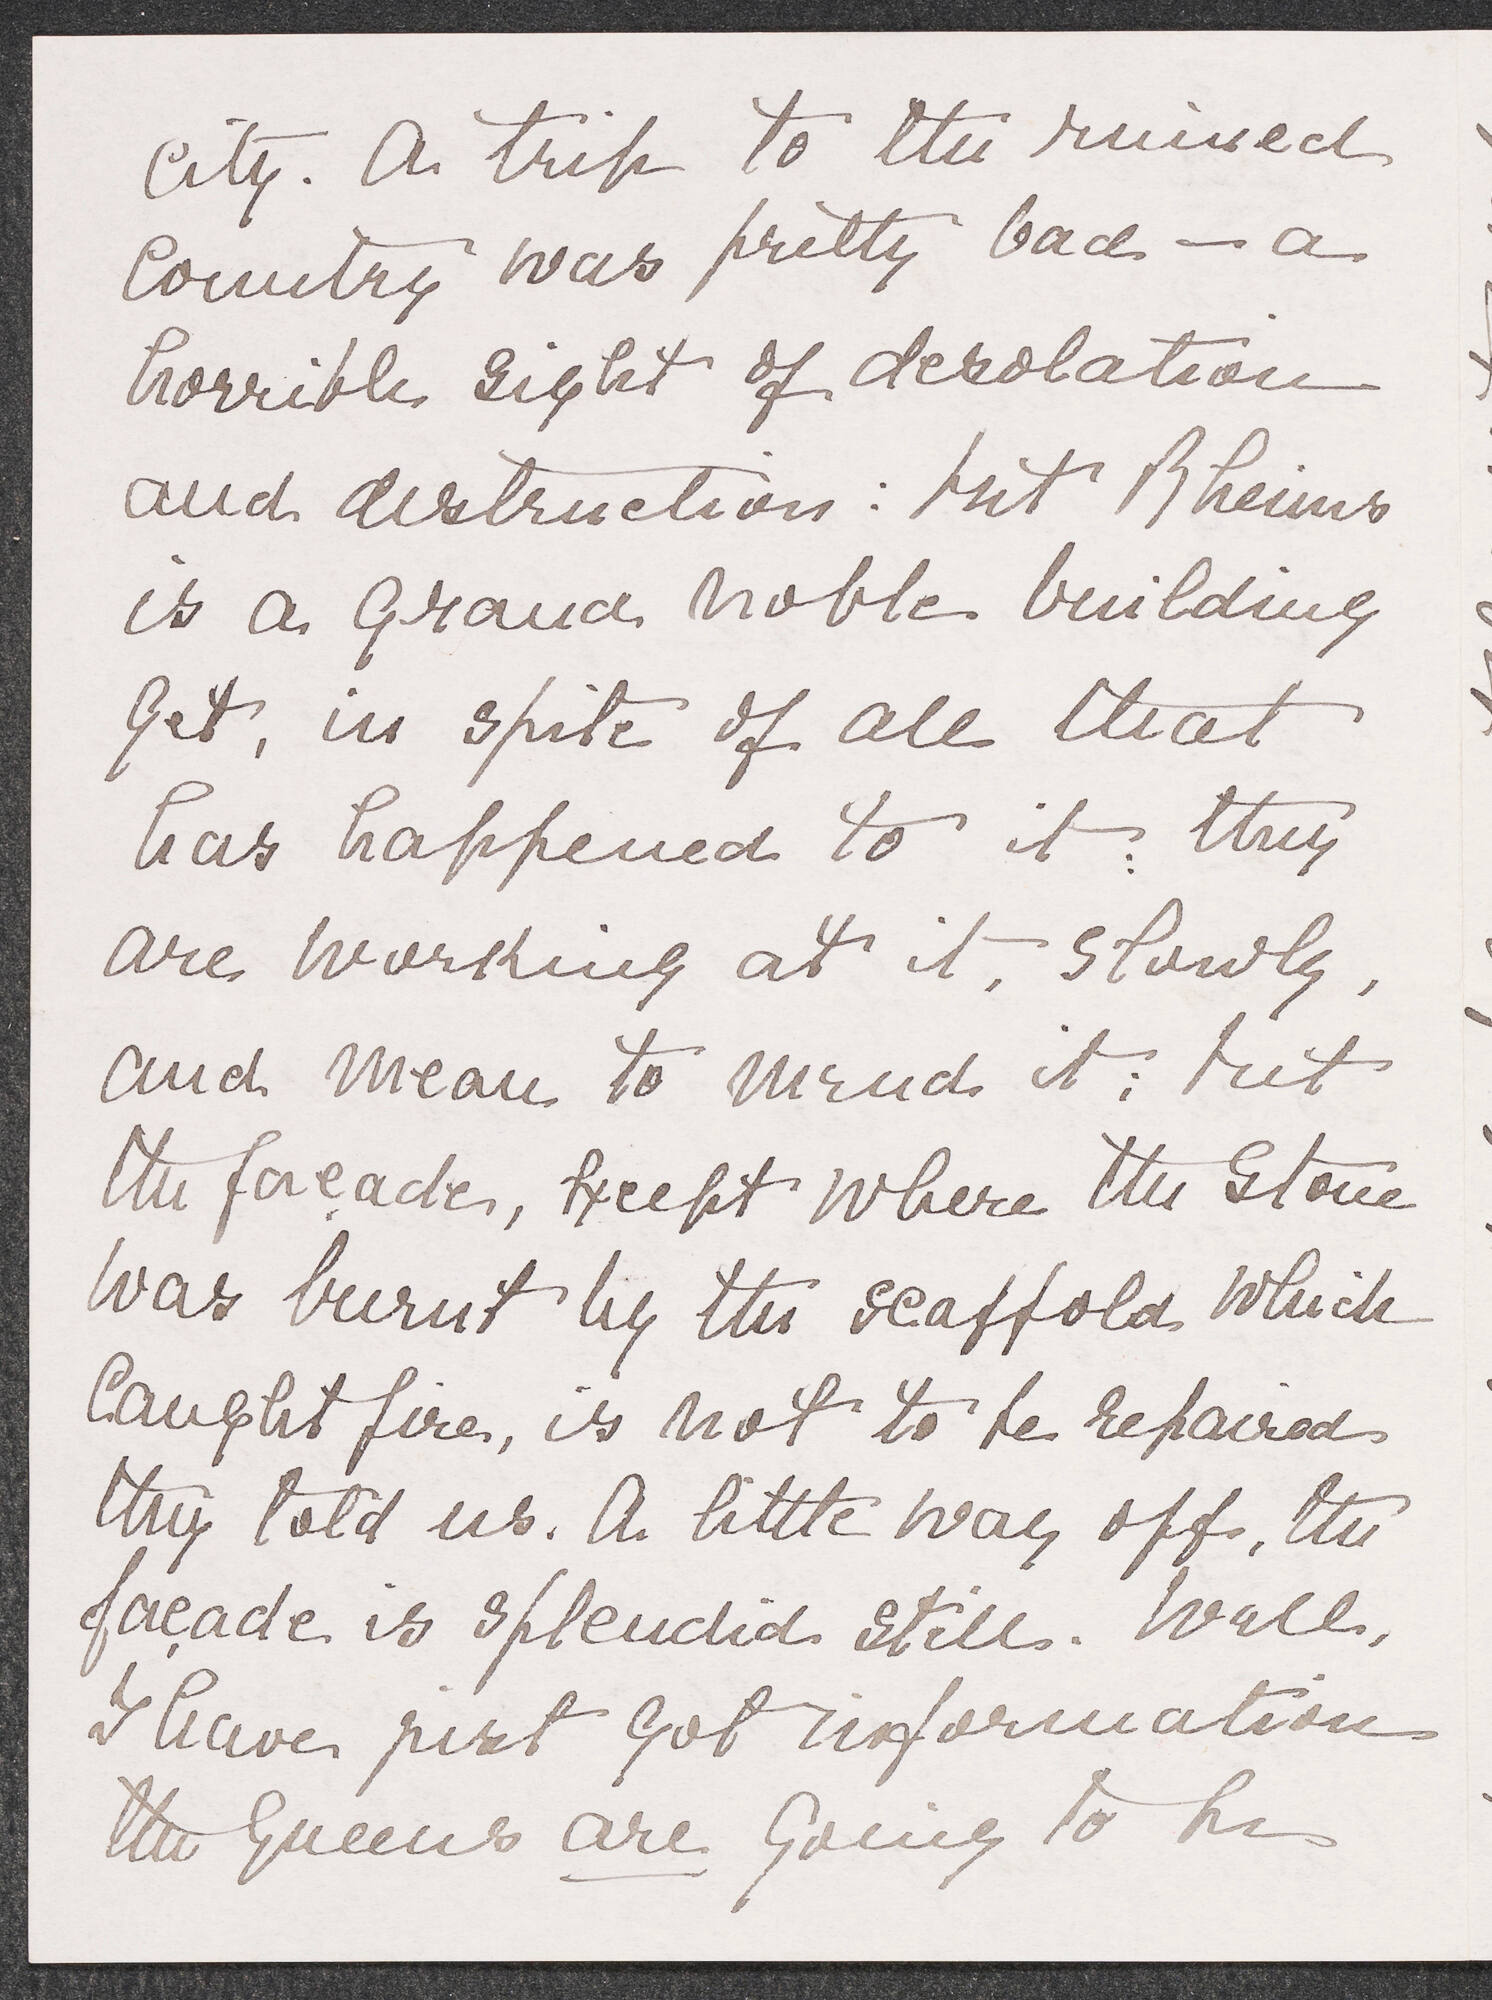 city. A trip to the ruined
country was pretty bad — a
horrible sight of desolation
and destruction: but Rheims
is a grand noble building
yet, in spite of all that
has happened to it: they
are working at it, slowly,
and mean to mend it; but
the façade, except where the stone
was burnt by the scaffold which
caught fire, is not to be repaired
they told us. A little way off, the
façade is splendid still. Well,
I have just got information
the Queens are going to be